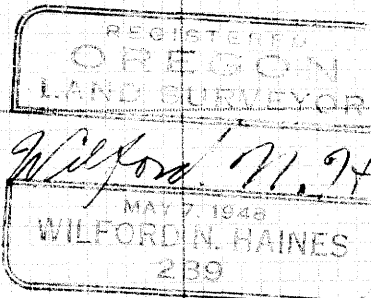 REGISTERED
OREGON
LAND SURVEYOR
Wilford N. H
MAY 7, 1948
WILFORD N. HAINES
289